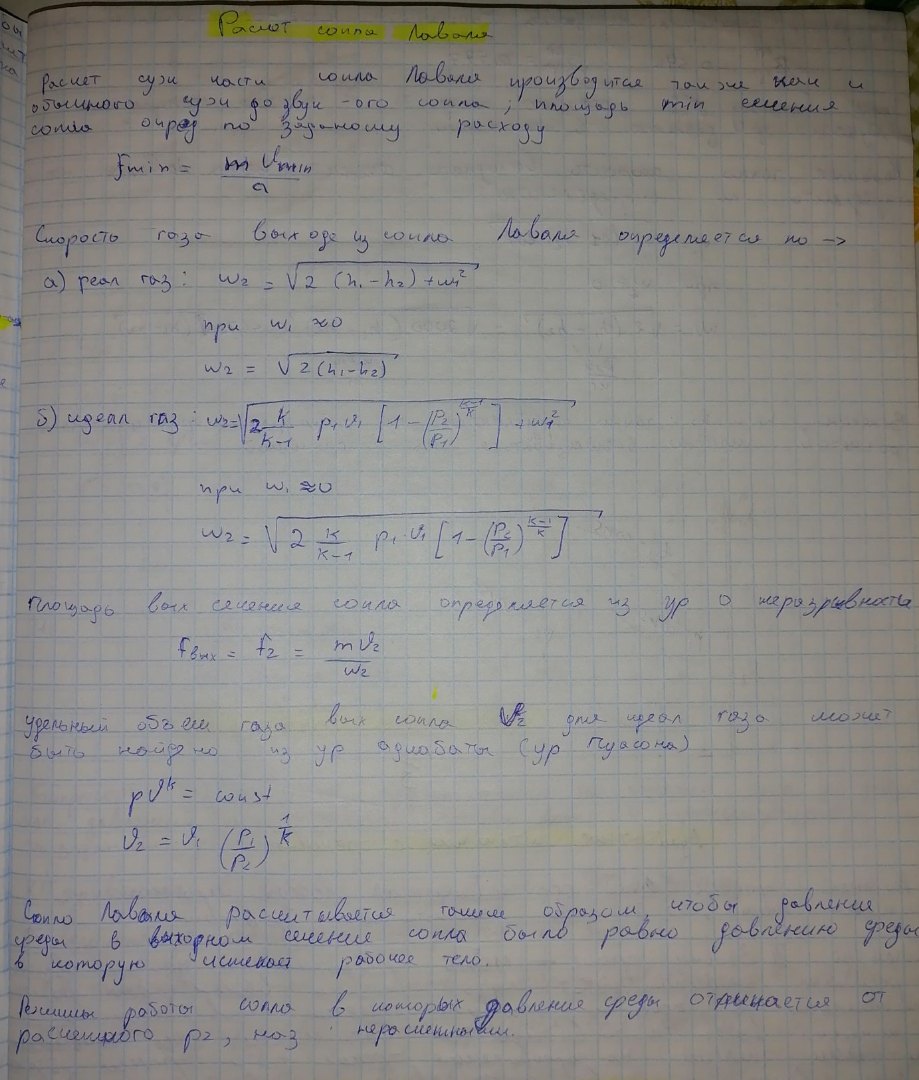 Расчет сопла Лаваля
Расчет суж части сопла Лаваля производится так же как и
обычного суж до звук-ого сопла, площадь min сечения
сопла опред по заданому расходу
fmin = m υmin / a
Скорость газа выходе из сопла Лаваля определяется по →
а) реал газ: w₂ = √(2 (h₁-h₂) + w₁²)
при w₁ ≈ 0
w₂ = √(2(h₁-h₂))
б) идеал газ: w₂ = √(2 k/(k-1) p₁ υ₁ [1 - (P₂/P₁)^((k-1)/k)] + w₁²)
при w₁ ≈ 0
w₂ = √(2 k/(k-1) p₁·υ₁ [1 - (P₂/P₁)^((k-1)/k)])
Площадь вых сечения сопла определяется из ур о неразрывность
fвых = f₂ = mυ₂ / w₂
удельный объем газа вых сопла υ₂ для идеал газа может
быть найдено из ур адиабаты (ур Пуасона)
pυᵏ = const
υ₂ = υ₁ (P₁/P₂)^(1/k)
Сопло Лаваля расчитывается таким образом, чтобы давление
среды в выходном сечение сопла было равно давлению среды
в которую истекает рабочее тело.
Режимы работы сопла в которых давление среды отличается от
расчетного p₂, наз нерасчетными.